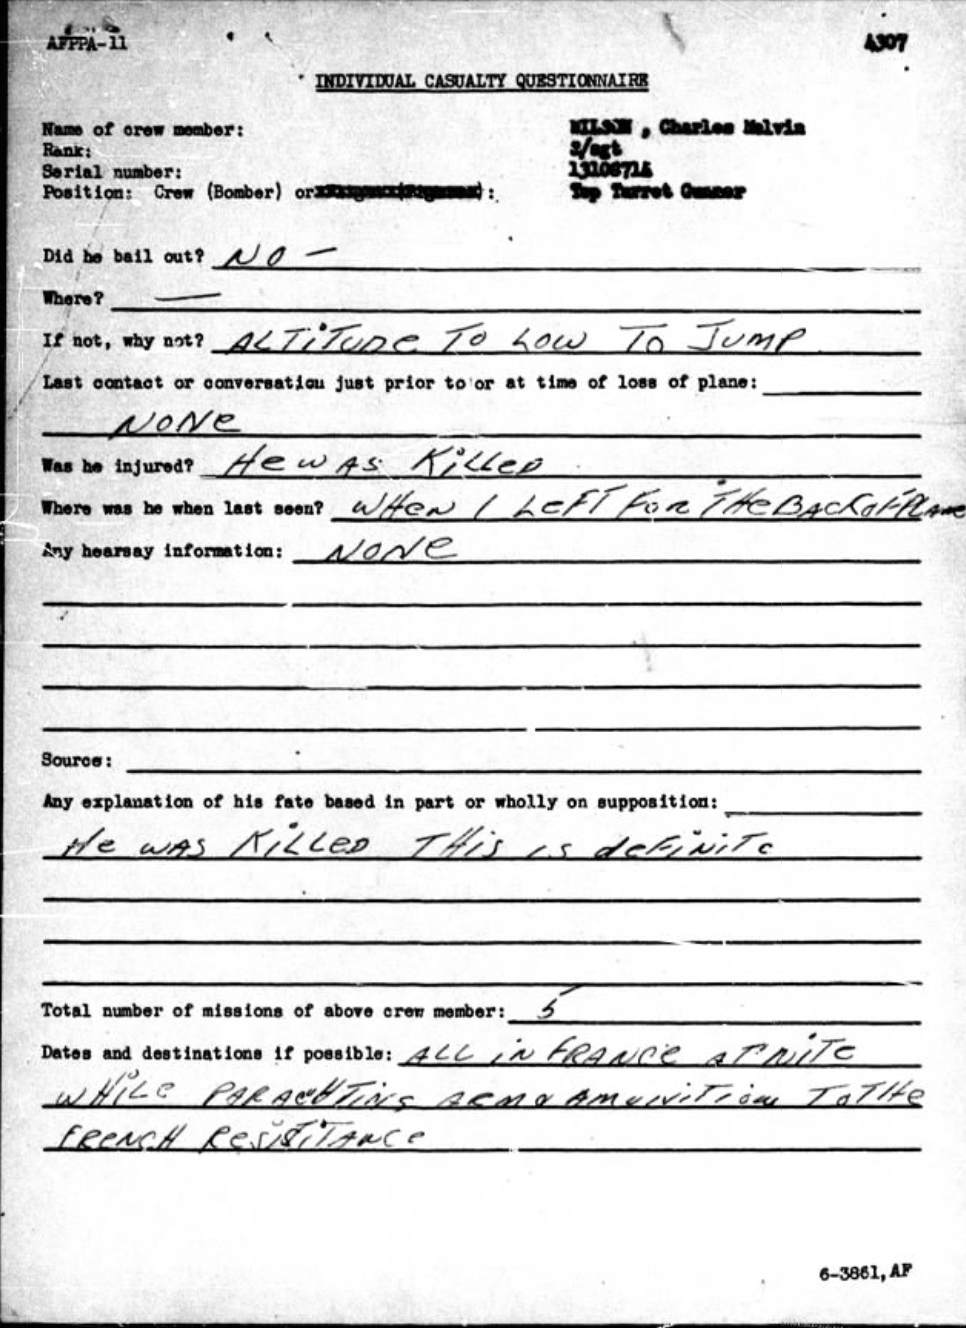 AFPPA-11
4307
INDIVIDUAL CASUALTY QUESTIONNAIRE
Name of crew member: , Charles Melvin
Rank: S/sgt
Serial number: 13106714
Position: Crew (Bomber) or :. Top Turret Gunner
Did he bail out? NO -
Where? —
If not, why not? ALTiTuDe To Low To JUMP
Last contact or conversation just prior to or at time of loss of plane:
NONe
Was he injured? He wAS KiLLeD
Where was he when last seen? WHen I LeFT FoR THe BACK oF PLane
Any hearsay information: NONe
Source:
Any explanation of his fate based in part or wholly on supposition:
He wAS KiLLeD THiS is deFiNiTe
Total number of missions of above crew member: 5
Dates and destinations if possible: ALL iN FRANCe AT NiTe
WHiLe To THe
FReNCH ReSiSTiTANCe
6-3861, AF